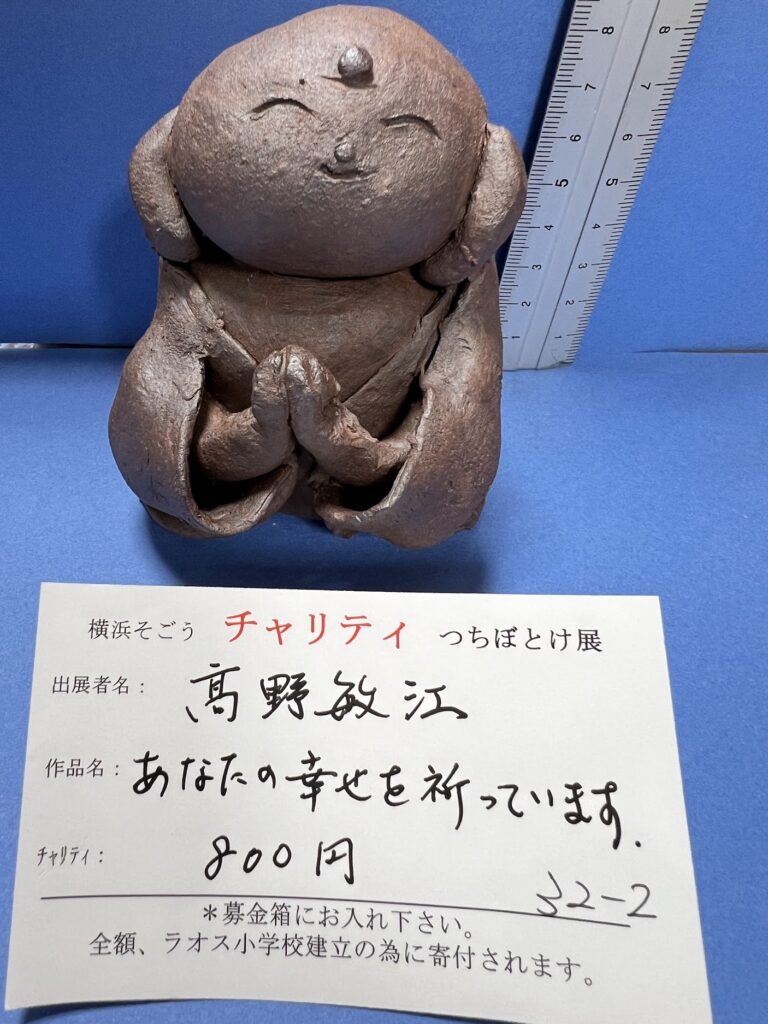 横浜そごう チャリティ つちぼとけ展
出展者名： 髙野敏江
作品名： あなたの幸せを祈っています.
ﾁｬﾘﾃｨ： 800円
32-2
＊募金箱にお入れ下さい。
全額、ラオス小学校建立の為に寄付されます。
8 8
7 7
6 6
5 5
4 4
3 3
2 2
1 1